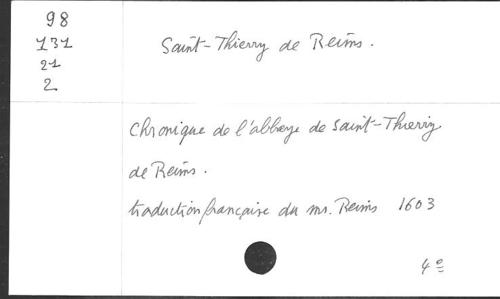 98
131
21
2
Saint-Thierry de Reims.
Chronique de l'abbaye de Saint-Thierry
de Reims.
traduction française du ms. Reims 1603
4º